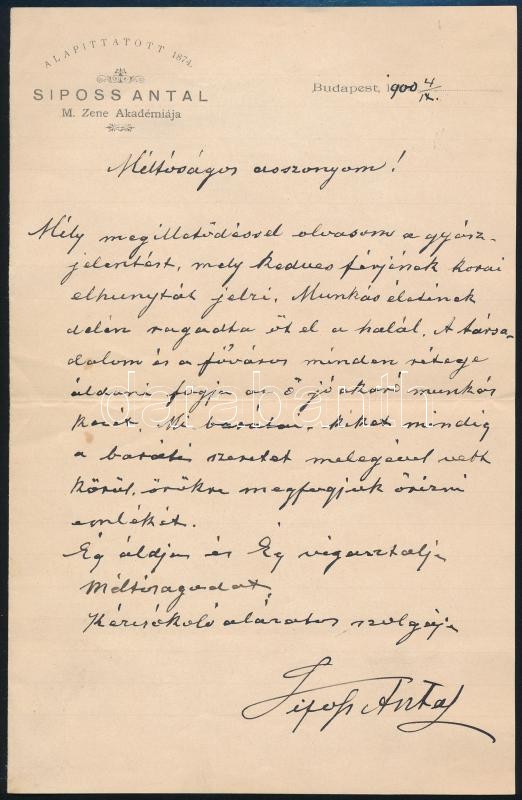 ALAPITTATOTT 1874.
SIPOSS ANTAL
M. Zene Akadémiája
Budapest, 1900 4/IX.
Méltóságos asszonyom!
Mély megilletődéssel olvasom a gyász-
jelentést, mely kedves férjének korai
elhunytát jelzi. Munkás életének
delén ragadta őt el a halál. A társa-
dalom és a főváros minden rétege
áldani fogja az ő jóakaró munkás
kezét. Mi barátai, kiket mindig
a baráti szeretet melegével vett
körül, örökre megfogjuk őrizni
emlékét.
Ég áldja és Ég vigasztalja
Méltóságodat.
Kézcsókoló alázatos szolgája
Siposs Antal
darabanth